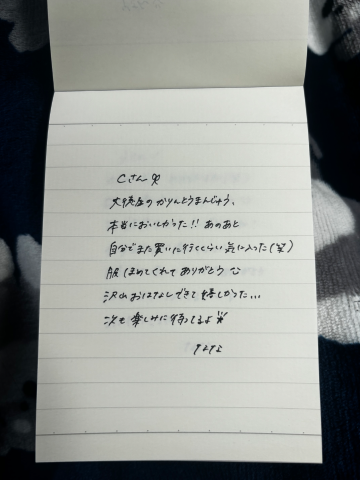 Cさん
大徳屋のかりんとうまんじゅう、
本当においしかった!! あのあと
自分でまた買いに行くくらい気に入った(笑)
服ほめてくれてありがとう
沢山おはなしできて嬉しかった...
次も楽しみに待ってるよ